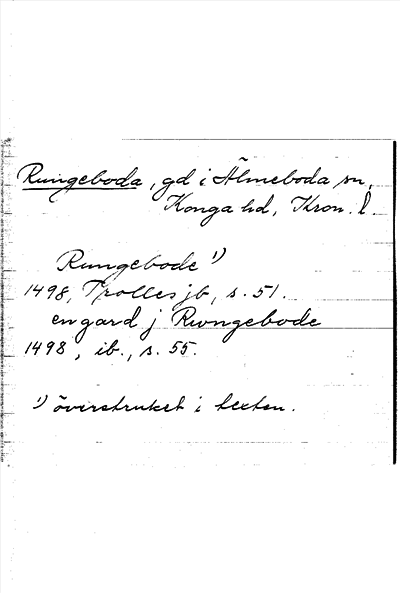 Rungeboda, gd i Älmeboda sn,
Konga hd, Kron. l.
Rungebode ¹)
1498, Trolles jb, s. 51.
en gard j Rwngebode
1498, ib., s. 55.
¹) överstruket i texten.